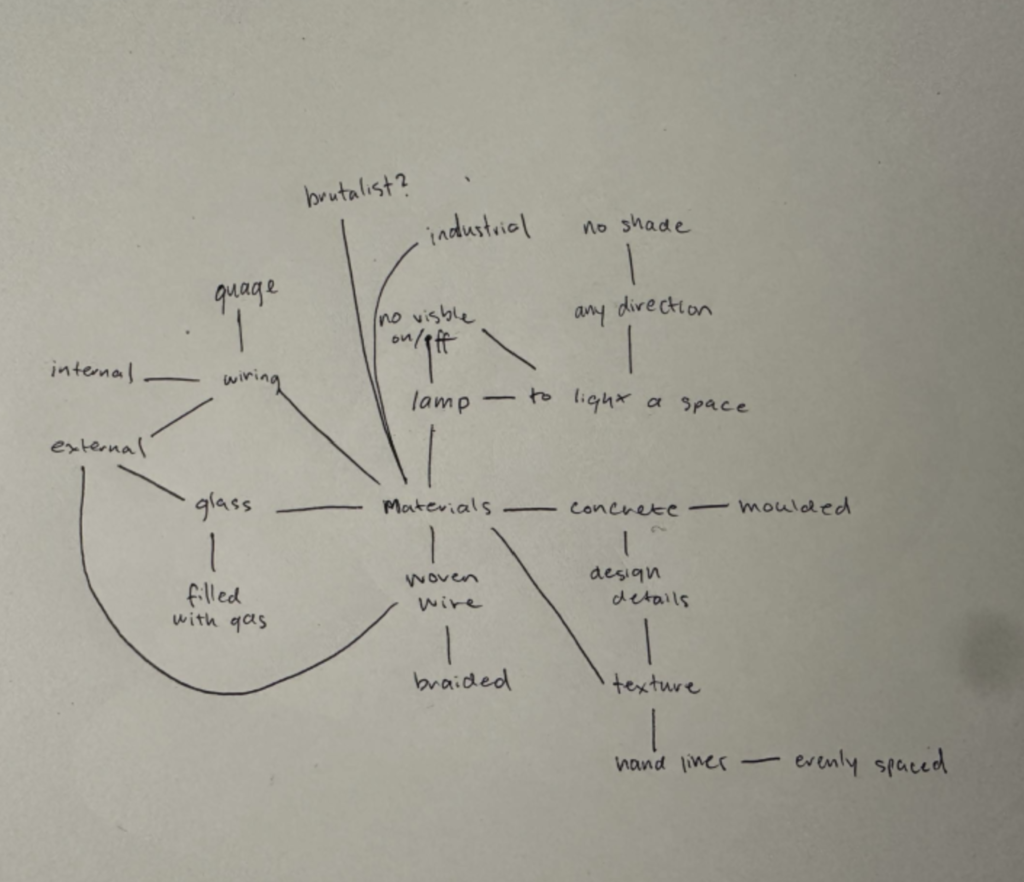 brutalist?
industrial
no shade
guage
no visble
on/off
any direction
internal
wiring
lamp
to light a space
external
glass
Materials
concrete
moulded
woven
wire
design
details
filled
with gas
braided
texture
hand lines
evenly spaced